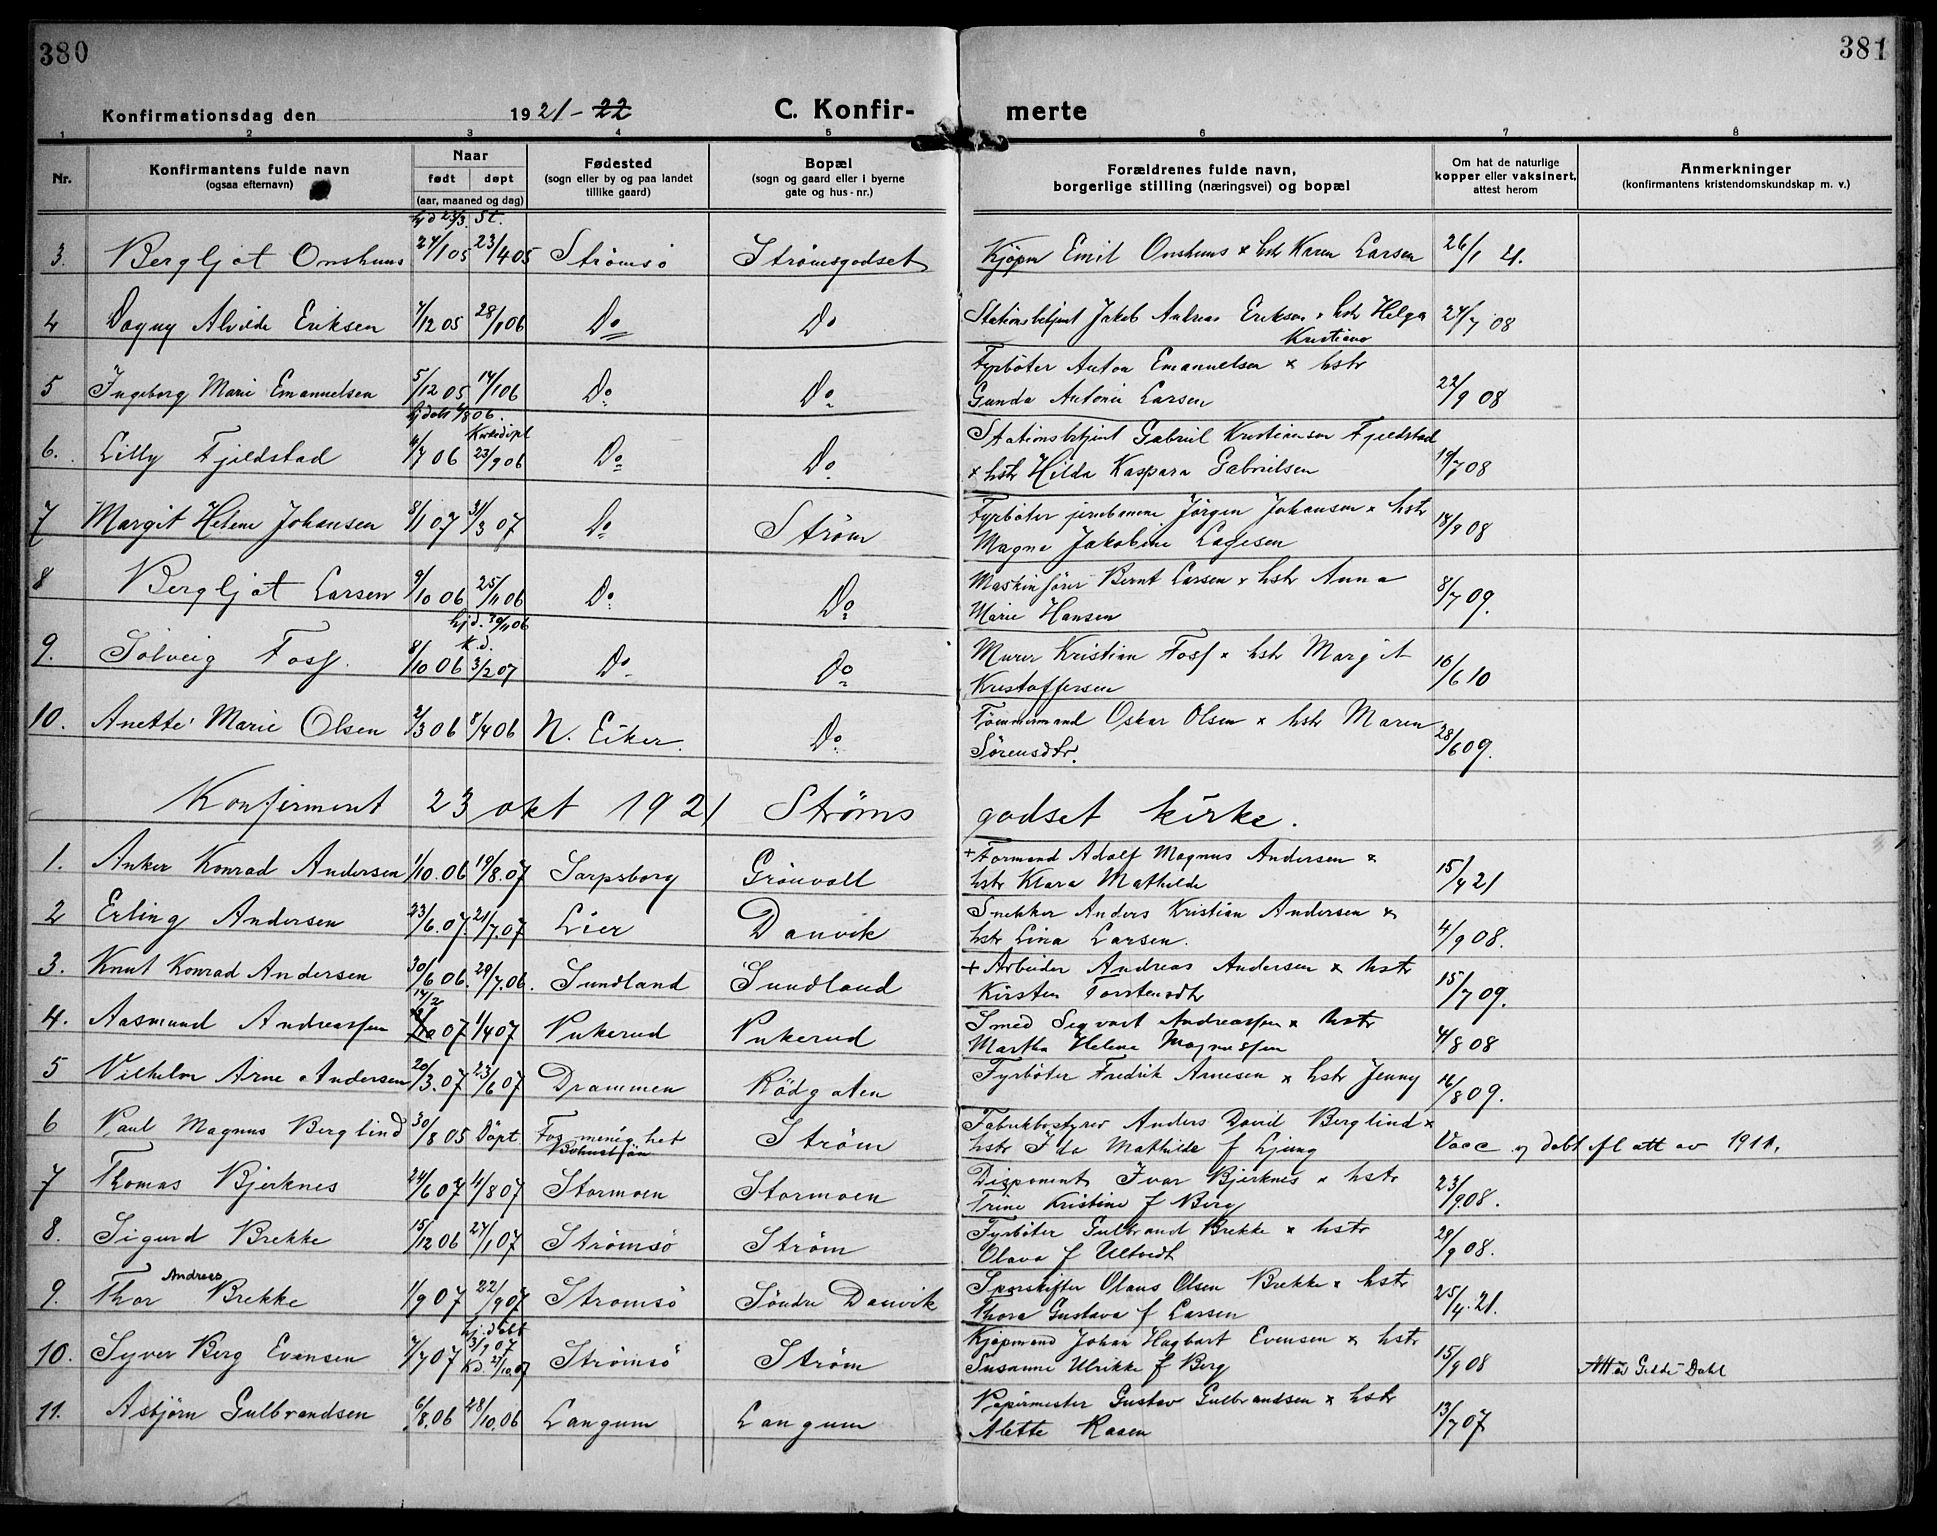 380
381
Konfirmationsdag den 1921-22 C. Konfir- merte
1 2 3 4 5 6 7 8
Nr. Konfirmantens fulde navn (ogsaa efternavn) Naar født døpt (aar, maaned og dag) Fødested (sogn eller by og paa landet tillike gaard) Bopæl (sogn og gaard eller i byerne gate og hus-nr.) Forældrenes fulde navn, borgerlige stilling (næringsvei) og bopæl Om hat de naturlige kopper eller vaksinert, attest herom Anmerkninger (konfirmantens kristendomskundskap m. v.)
hjd 25/3. St.
3. Bergljot Onshuus 24/1 05 23/4 05 Strømsö Strømsgodset Kjöpm Emil Onshuus x hstr Karen Larsen 26/1 21.
4 Dagny Alvilde Eriksen 7/12 05 28/1 06 Do Do Stationsbetjent Jakob Andreas Eriksen x hstr Helga Kristiane 24/7 08
5 Ingeborg Marie Emanuelsen 5/12 05 14/1 06 Do Do Fyrböter Anton Emanuelsen x hstr
Gunda Antonie Larsen 22/9 08
hjdöbt 6/8 06. Kirkedöpt
6. Lilly Fjeldstad 4/7 06 23/9 06 Do Do Stationsbetjent Gabriel Kristiansen Fjeldstad
x hstr Hilda Kaspara Gabrielsen 19/7 08
7 Margit Helene Johansen 8/1 07 31/3 07 Do Ström Fyrböter jernbanene Jörgen Johansen x hstr
Magna Jakobine Lagesen 18/9 08
8 Bergljot Larsen 9/10 06 25/11 06 Do Do Maskinförer Bernt Larsen x hstr Anna
Marie Hansen 8/7 09.
hjd. 30/11 06 k.d.
9. Solveig Foss 8/10 06 3/2 07 Do Do Murer Kristian Foss x hstr Margit
Kristoffersen 16/6 10
10. Anette Marie Olsen 2/3 06 8/4 06 N. Eiker. Do Tømmermand Oskar Olsen x hstr Maren
Sörensdtr. 28/6 09.
Konfirment 23 okt 1921 Ströms godset kirke.
1. Anker Konrad Andersen 1/10.06 19/8.07 Sarpsborg Grönvoll + Formand Adolf Magnus Andersen x
hstr Klara Mathilde 15/4 21
2 Erling Andersen 23/6.07. 21/7.07 Lier Danvik Snekker Anders Kristian Andersen x
hstr Lina Larsen. 4/9 08.
3. Knut Konrad Andersen 30/6 06. 29/7.06. Sundland Sundland + Arbeider Andreas Andersen x hstr
Kirsten Torstensdtr 15/7 09.
4. Aasmund Andreassen 14/2 07 1/4 07 Pukerud Pukerud Smed Sigvart Andreassen x hstr
Martha Helene Magnussen 4/8 08
5 Vilhelm Arne Andersen 20/3.07 23/6 07 Drammen Rödgaten Fyrböter Fredrik Arnesen x hstr Jenny 16/8 09.
6 Paul Magnus Berglind 30/8 05 Döpt Fos menighet Bohuslän Ström Fabrikbestyrer Anders David Berglind x
hstr Ida Mathilde f Ljung Vacc og döbt fl att av 1911.
7 Thomas Bjerknes 24/6 07 11/8 07 Stormoen Stormoen Disponent Ivar Bjerknes x hstr
Trine Kristine f Berg 23/9 08.
8. Sigurd Brekke 15/12 06 27/1 07 Strömsö Ström Fyrböter Gulbrand Brekke x hstr
Olava f Ultvedt 29/9 08.
9. Thor Andreas Brekke 1/9 07 22/9 07 Strömsö Söndre Danvik Sporskifter Olaus Olsen Brekke x hstr
Thora Gustava f Larsen 25/4. 21.
hj.döbt 31/7 07
10. Syver Berg Evensen 7/7 07 Kd. 27/10.07 Strömsö Ström Kjöpmand Johan Hagbart Evensen x hstr
Susanne Ulrikke f Berg 15/9 08 Att Gilde-Dahl
11. Asbjörn Gulbrandsen 6/8.06 28/10.06 Langum Langum Papirmester Gustav Gulbrandsen x hstr
Alette Raaen 13/7 07